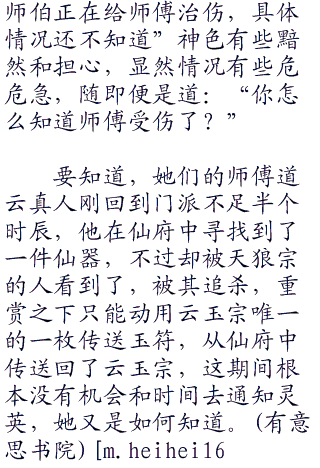 师伯正在给师傅治伤，具体
情况还不知道”神色有些黯
然和担心，显然情况有些危
危急，随即便是道：“你怎
么知道师傅受伤了？”
要知道，她们的师傅道
云真人刚回到门派不足半个
时辰，他在仙府中寻找到了
一件仙器，不过却被天狼宗
的人看到了，被其追杀，重
赏之下只能动用云玉宗唯一
的一枚传送玉符，从仙府中
传送回了云玉宗，这期间根
本没有机会和时间去通知灵
英，她又是如何知道。(有意
思书院)[m.heihei16